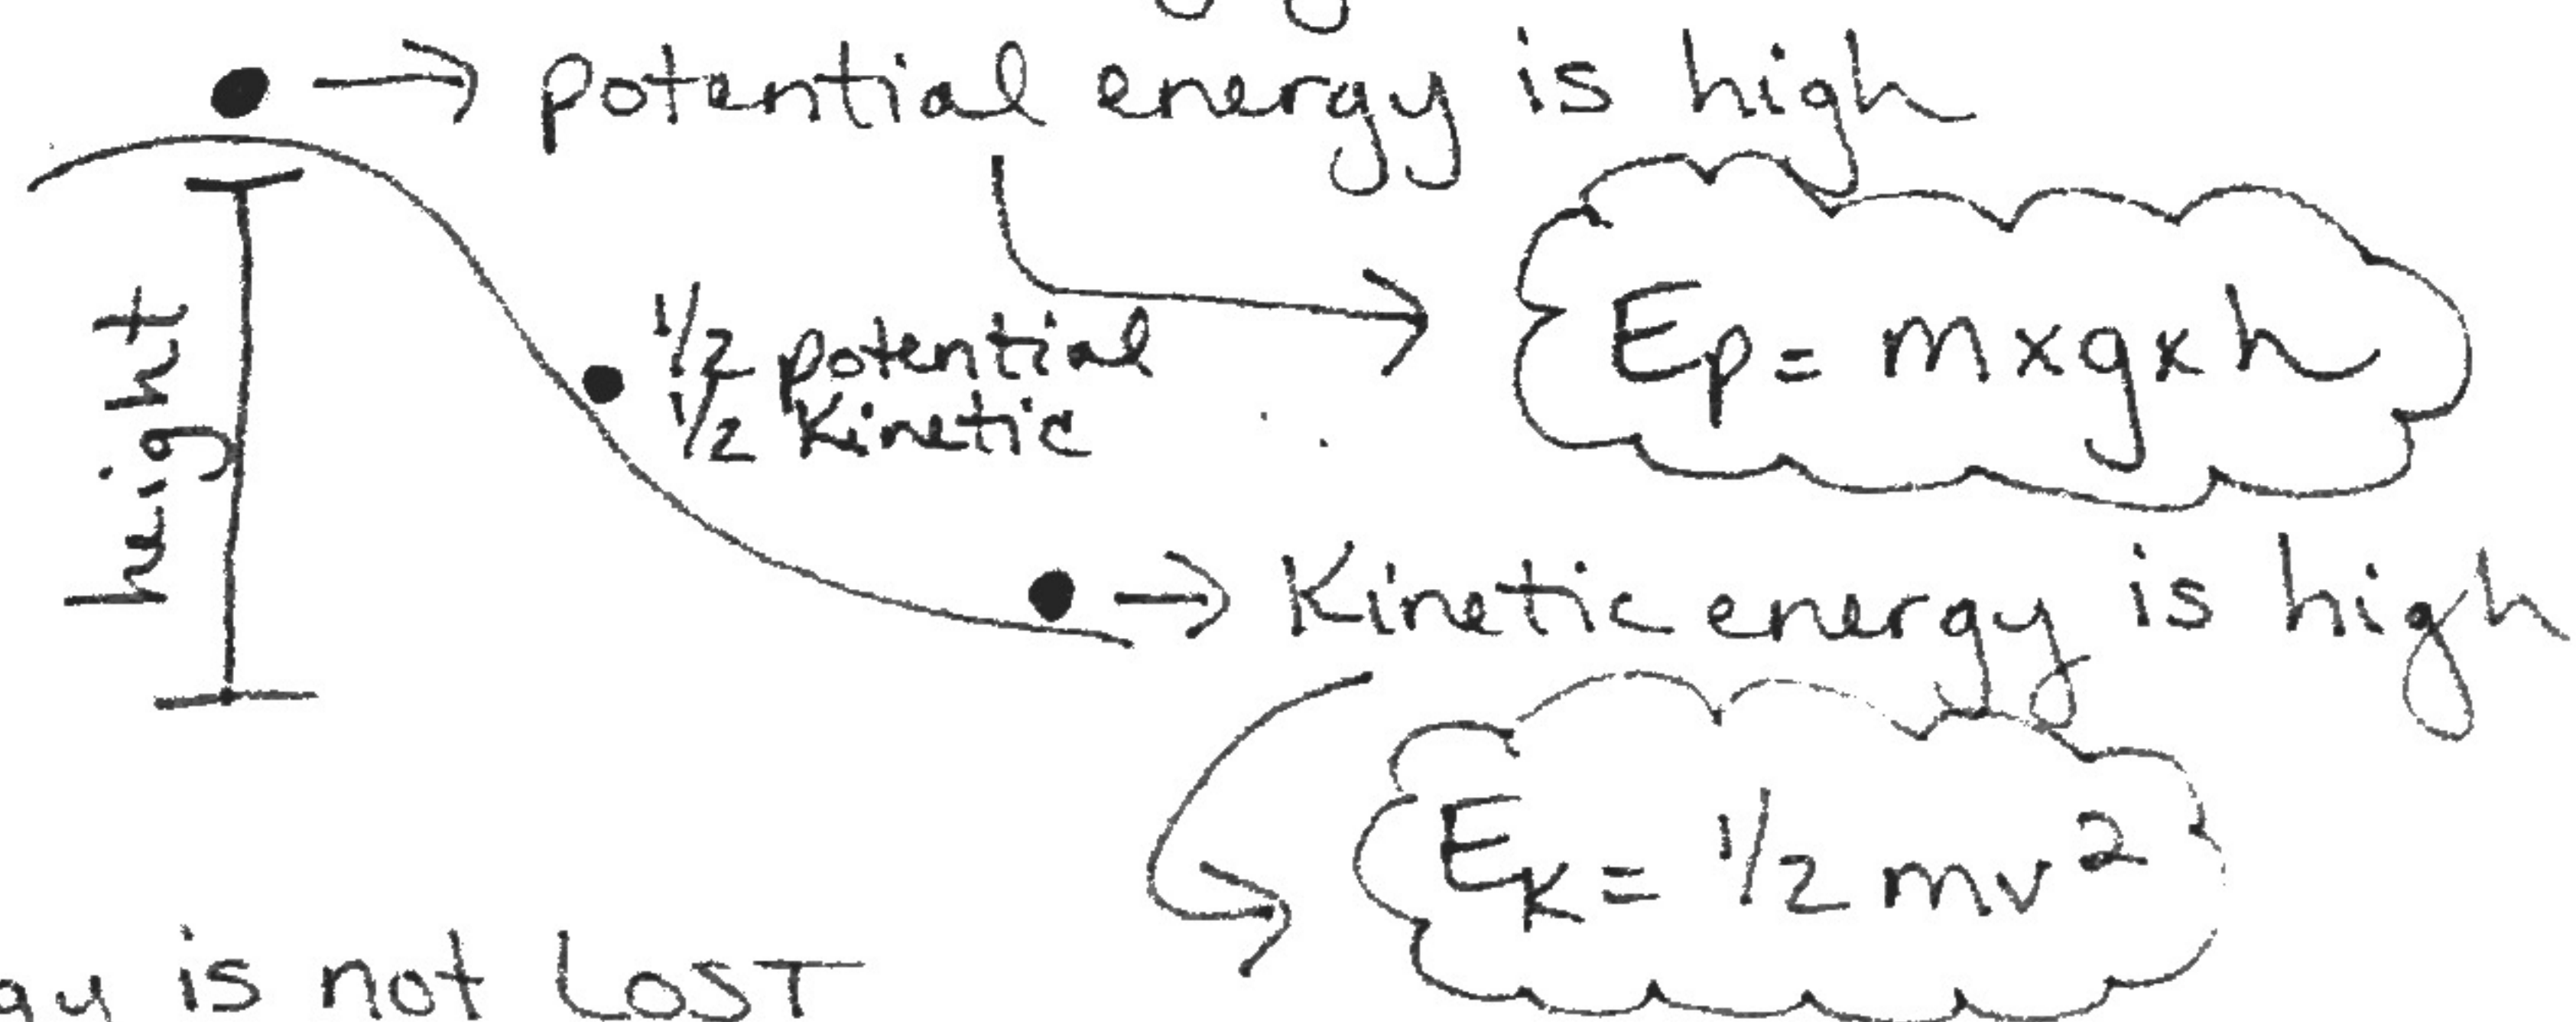 potential energy is high
height
1/2 potential
1/2 Kinetic
Ep = m x g x h
Kinetic energy is high
EK = 1/2 mv²
is not LOST